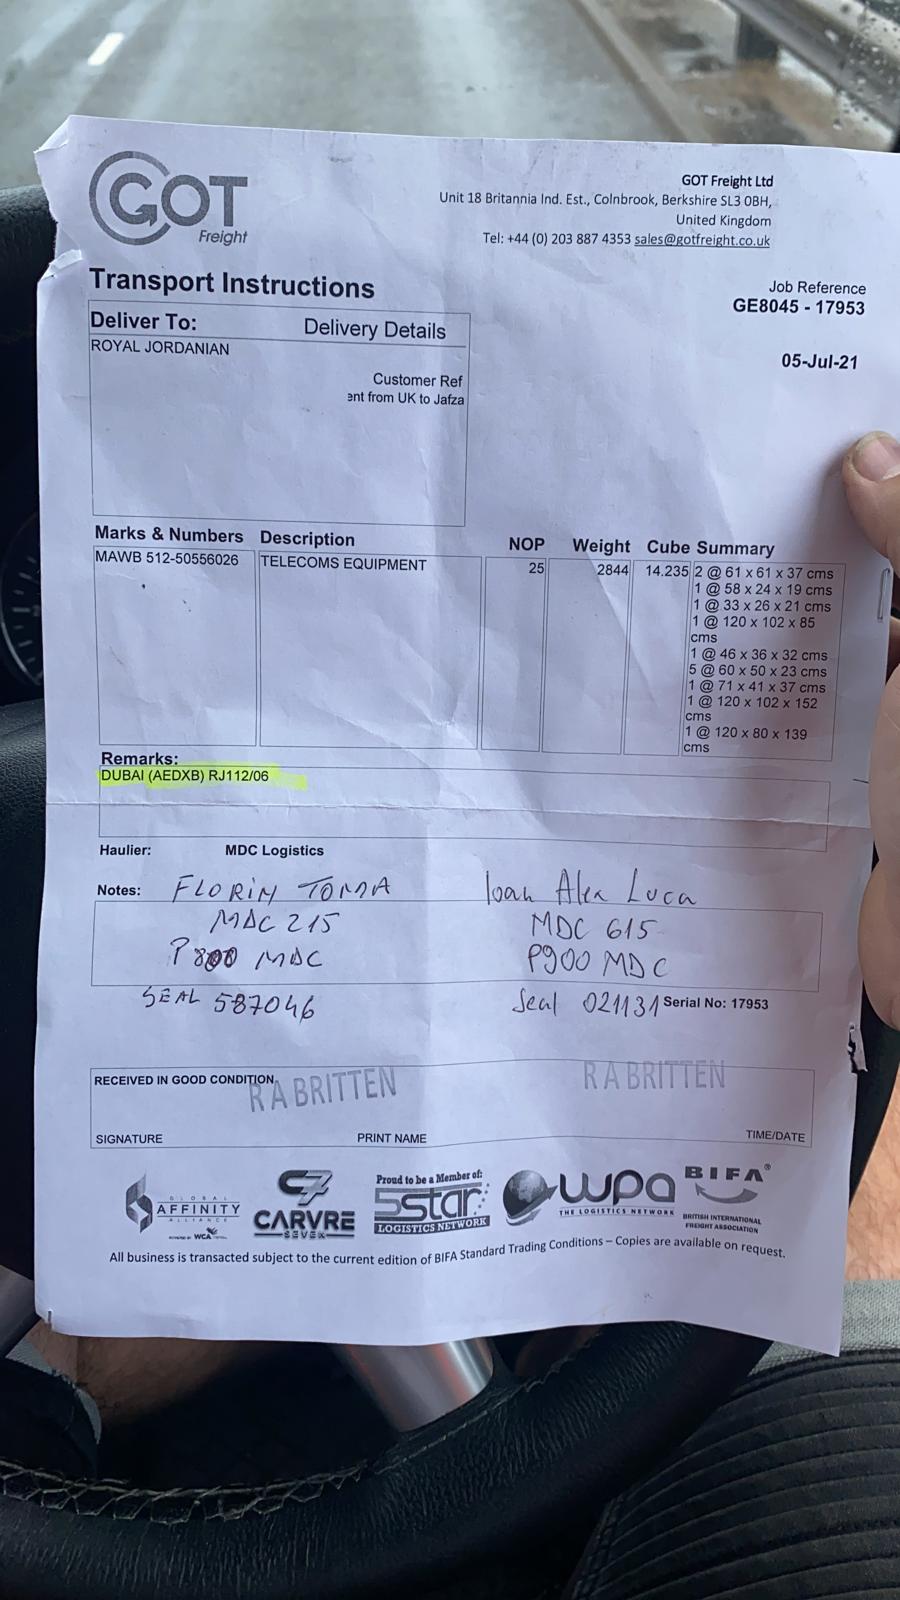 GOT
Freight
GOT Freight Ltd
Unit 18 Britannia Ind. Est., Colnbrook, Berkshire SL3 0BH,
United Kingdom
Tel: +44 (0) 203 887 4353 sales@gotfreight.co.uk
Transport Instructions
Job Reference
GE8045 - 17953
05-Jul-21
Deliver To: Delivery Details
ROYAL JORDANIAN
Customer Ref
ent from UK to Jafza
Marks & Numbers Description NOP Weight Cube Summary
MAWB 512-50556026 TELECOMS EQUIPMENT 25 2844 14.235 2 @ 61 x 61 x 37 cms
1 @ 58 x 24 x 19 cms
1 @ 33 x 26 x 21 cms
1 @ 120 x 102 x 85
cms
1 @ 46 x 36 x 32 cms
5 @ 60 x 50 x 23 cms
1 @ 71 x 41 x 37 cms
1 @ 120 x 102 x 152
cms
1 @ 120 x 80 x 139
cms
Remarks:
DUBAI (AEDXB) RJ112/06
Haulier: MDC Logistics
Notes: FLORIN TOMA Ioan Alex Luca
MDC 215 MDC 615
P800 MDC P900 MDC
SEAL 587046 Seal 021131 Serial No: 17953
RECEIVED IN GOOD CONDITION
R A BRITTEN R A BRITTEN
SIGNATURE PRINT NAME TIME/DATE
GLOBAL
AFFINITY
ALLIANCE
POWERED BY WCA
C7
CARVRE
SEVEN
Proud to be a Member of:
5star
LOGISTICS NETWORK
wpa
THE LOGISTICS NETWORK
BIFA®
BRITISH INTERNATIONAL
FREIGHT ASSOCIATION
All business is transacted subject to the current edition of BIFA Standard Trading Conditions – Copies are available on request.